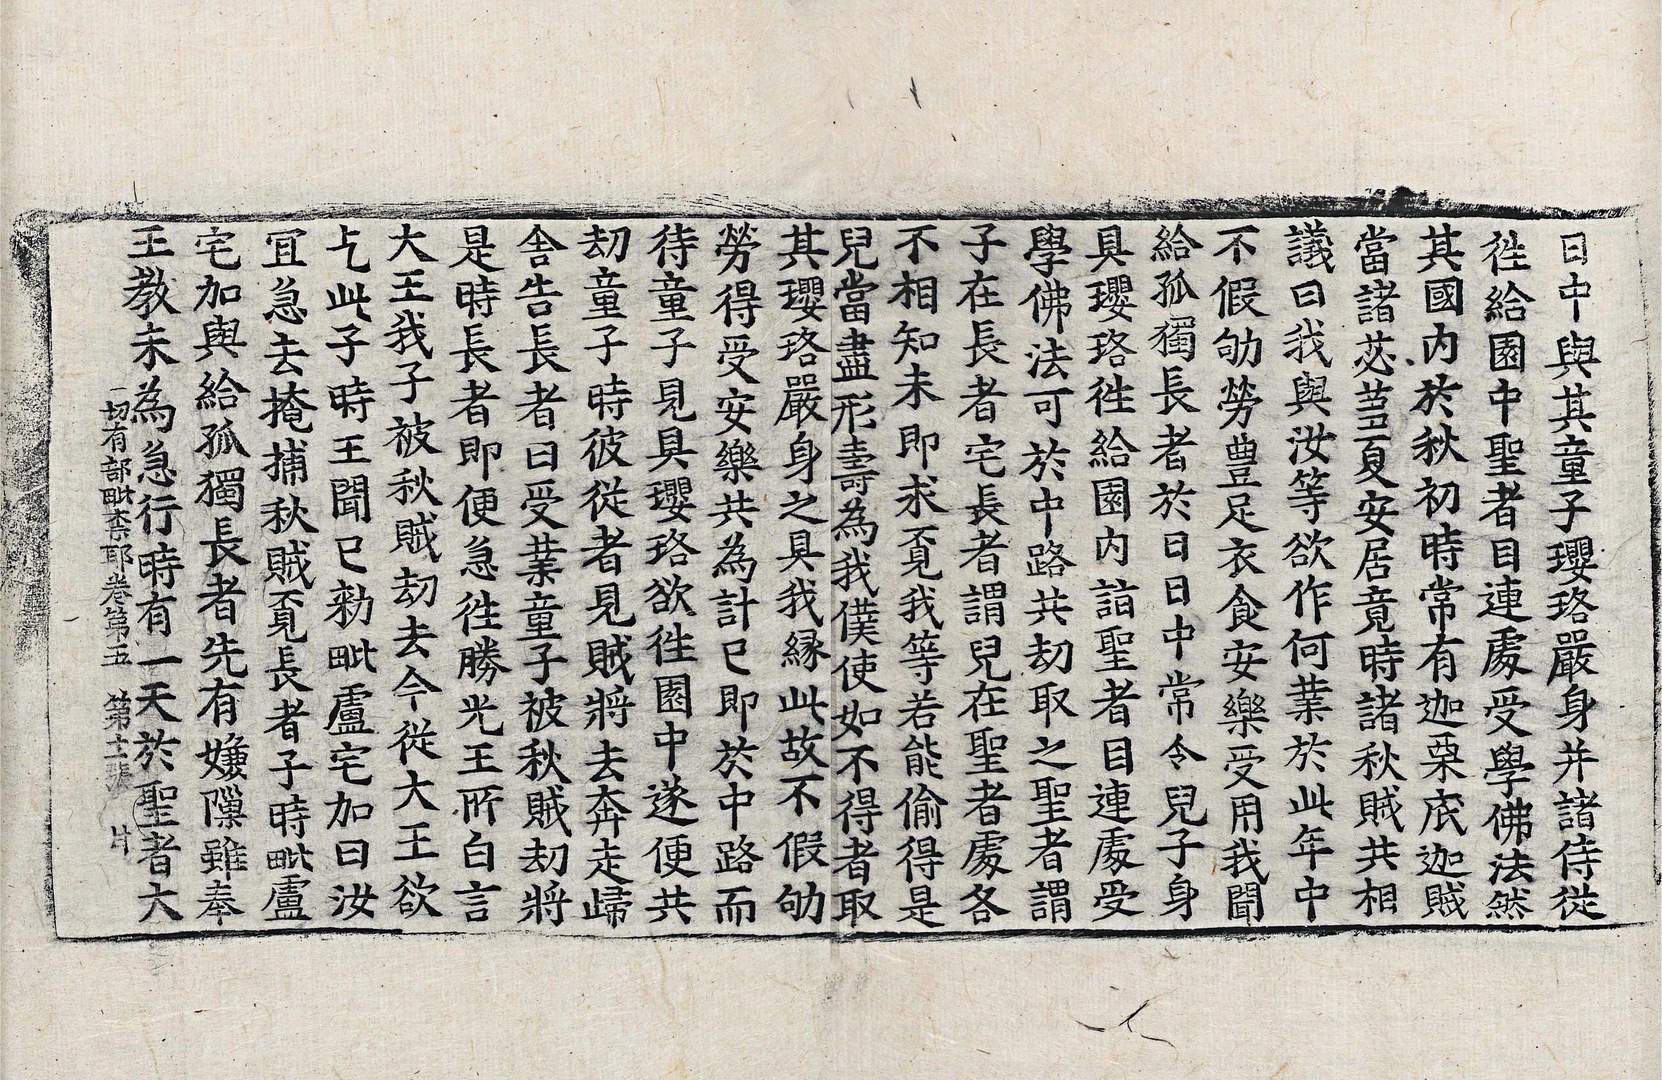 日中與其童子瓔珞嚴身并諸侍從
徃給園中聖者目連處受學佛法然
其國內於秋初時常有迦栗底迦賊
當諸苾芻夏安居竟時諸秋賊共相
議曰我與汝等欲作何業於此年中
不假劬勞豊足衣食安樂受用我聞
給孤獨長者於日日中常令兒子身
具瓔珞徃給園內詣聖者目連處受
學佛法可於中路共刼取之聖者謂
子在長者宅長者謂兒在聖者處各
不相知未即求覔我等若能偷得是
兒當盡形壽為我僕使如不得者取
其瓔珞嚴身之具我縁此故不假劬
勞得受安樂共為計已即於中路而
待童子見具瓔珞欲徃園中遂便共
刼童子時彼從者見賊將去奔走歸
舍告長者曰受業童子被秋賊刼將
是時長者即便急徃勝光王所白言
大王我子被秋賊刼去今從大王欲
乞此子時王聞已勑毗盧宅加曰汝
冝急去掩捕秋賊覔長者子時毗盧
宅加與給孤獨長者先有嫌隟雖奉
王教未為急行時有一天於聖者大
一切有部毗柰耶卷第五　第十二張　廾